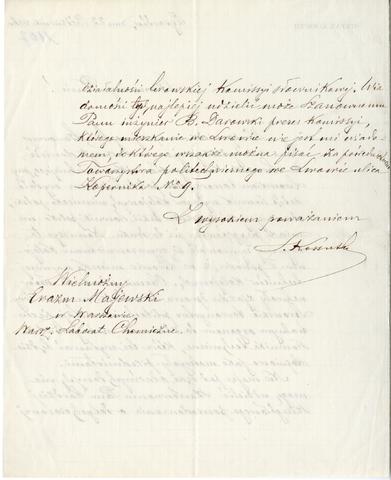 działalności lwowskiej Komissyi słownikowej. Wia
domości tej najlepiej udzielić może Szanownemu
Panu inżynier B. Darowski prezes Komissyi,
którego mieszkanie we Lwowie nie jest mi wiado
mem, do którego wszakże można pisać za pośred
Towarzystwa politechnicznego we Lwowie ulica
Kopernika No 9.
Z wysokiem poważaniem
Wielmożny
Erazm Majewski
w Warszawie
Warsz. Laborat. Chemiczne